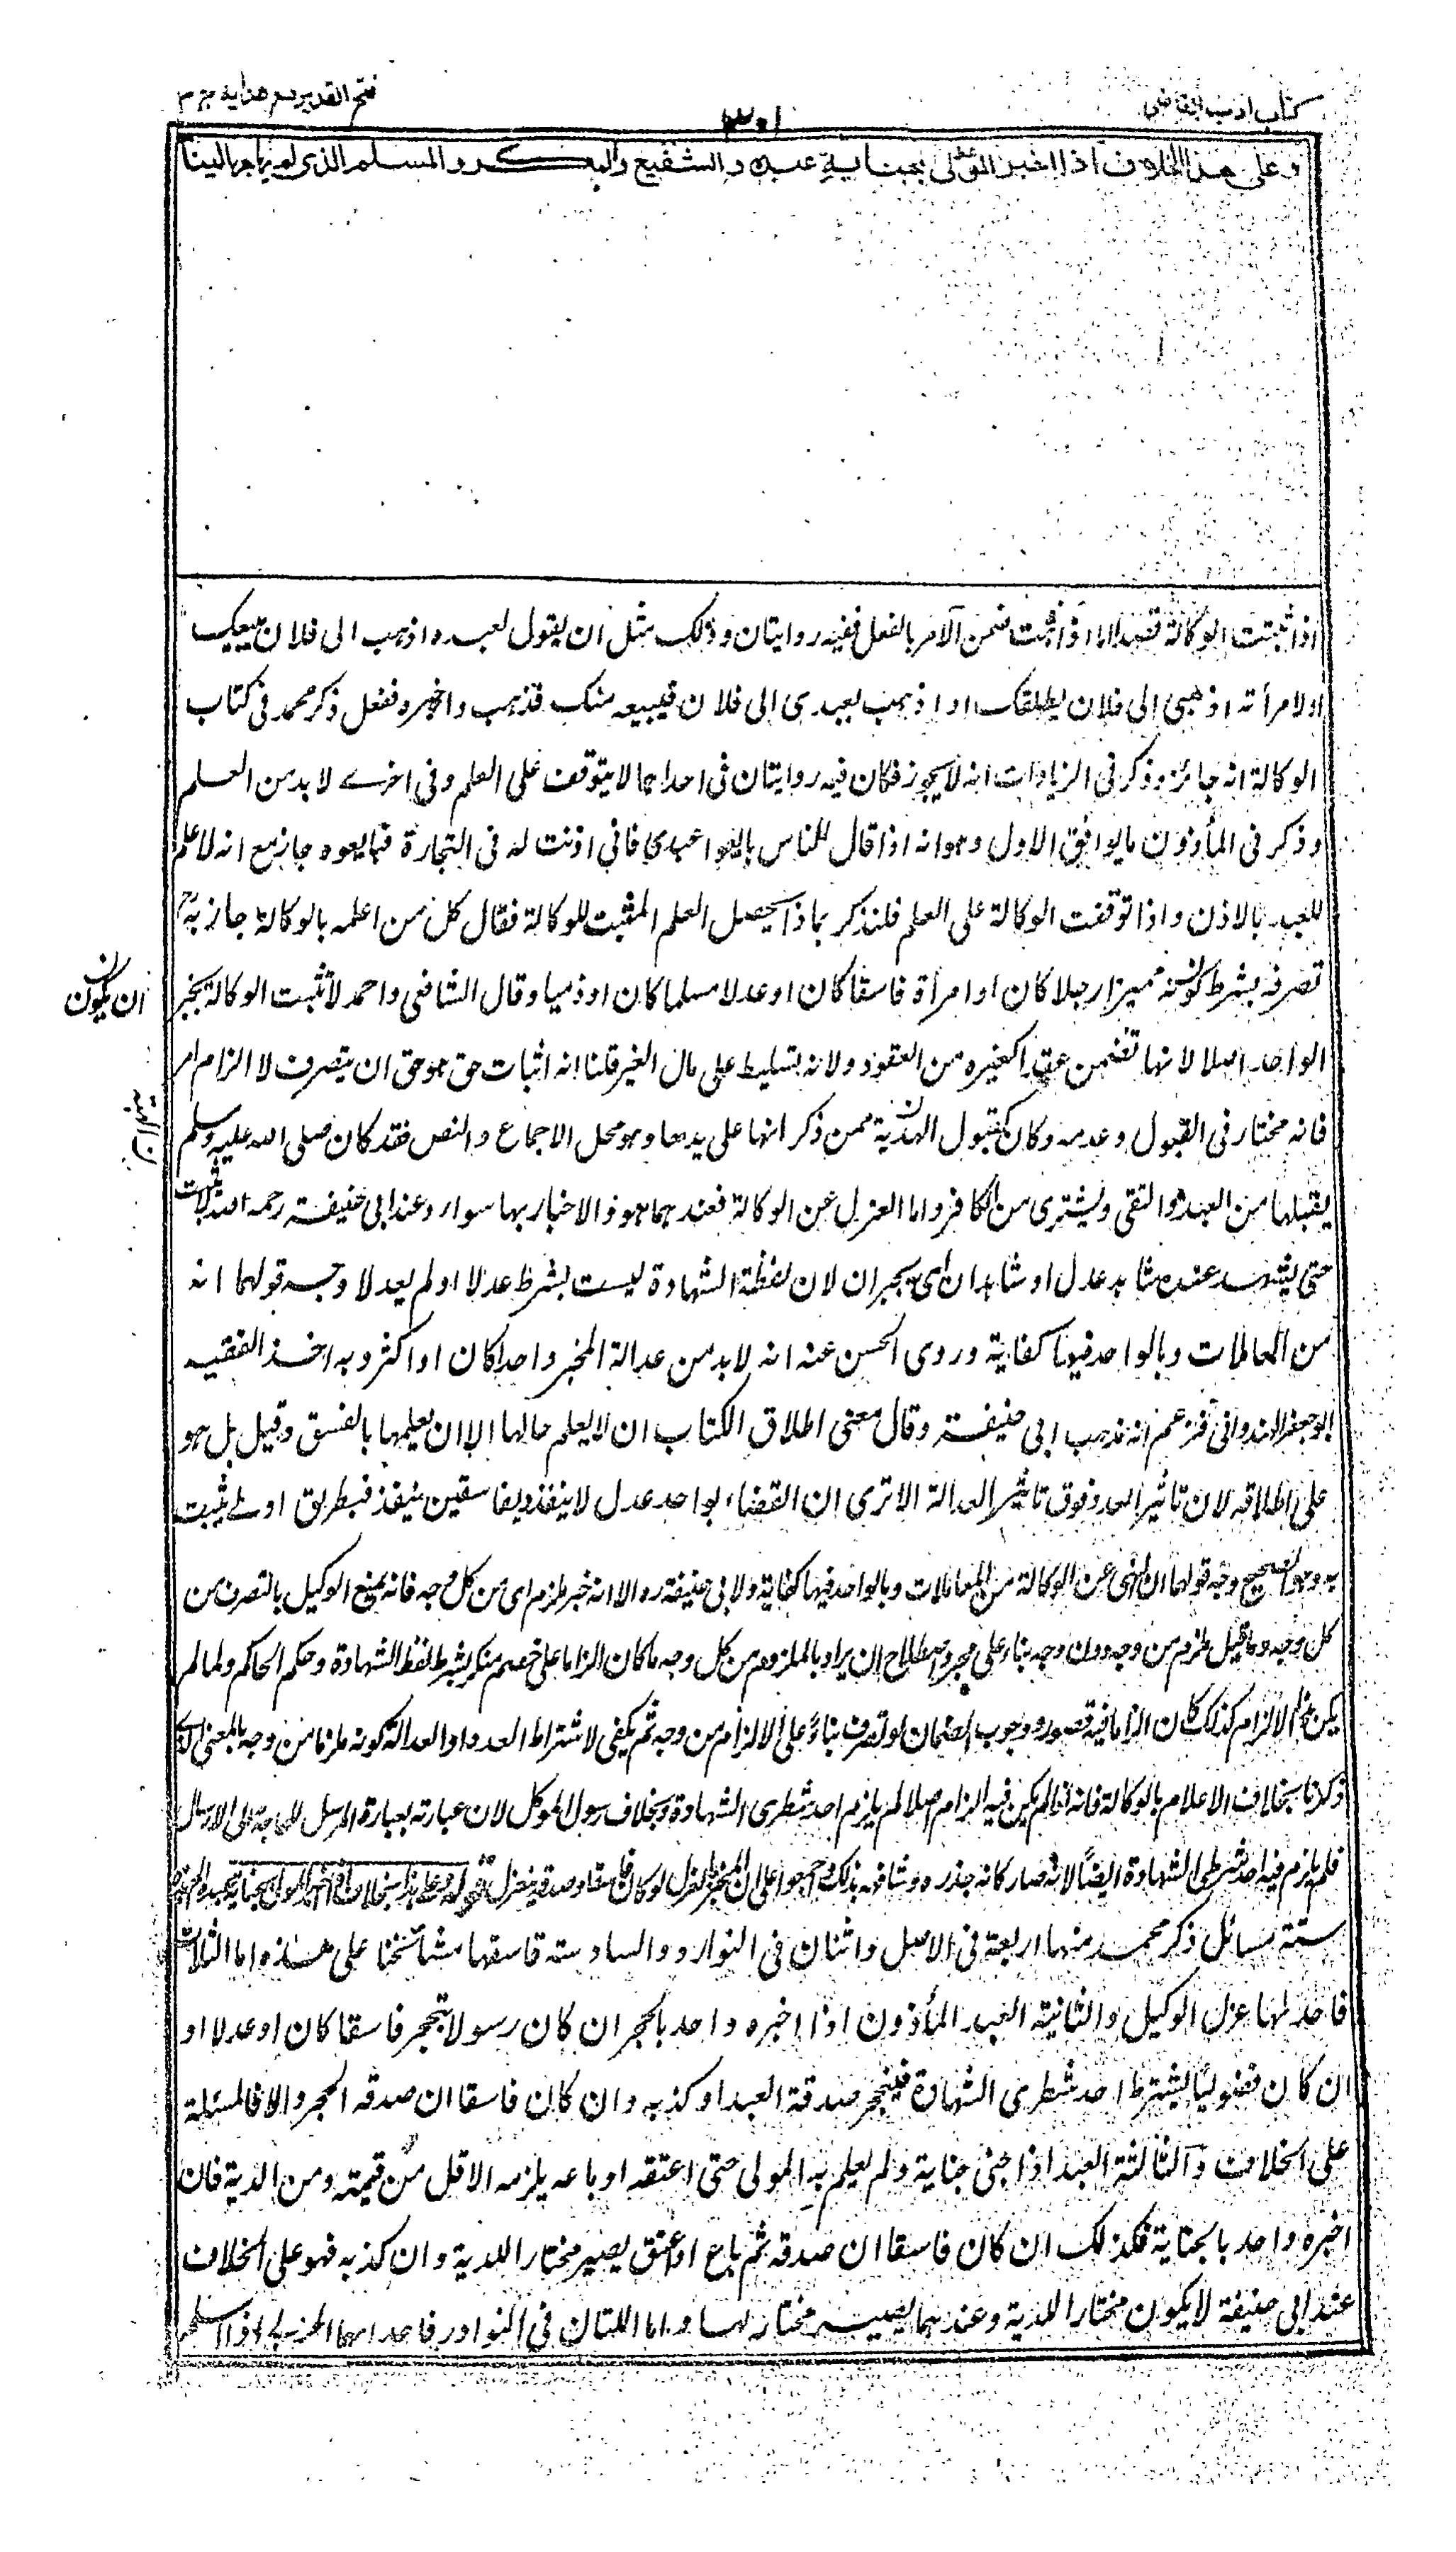 كتاب ادب القاضی
٣٠١
فتح القدير مع هداية ج ٣
وعلى هذا الخلاف اذا اخبر المولى بجناية عبده والشفيع والبكر والمسلم الذى لم يهاجر الينا
اذا ثبتت الوكالة قصدا اما اذا ثبتت ضمن الامر بالفعل ففيه روايتان وذلك مثل ان يقول لعبده اذهب الى فلان يبيعك
او لامرأته اذهبى الى فلان ليطلقك او اذهب بعبدى الى فلان فيبيعه منك فذهب واخبره ففعل ذكر محمد فى كتاب
الوكالة انه جائز وذكر فى الزيادات انه لا يجوز فكان فيه روايتان فى احداهما لا يتوقف على العلم وفى اخرے لا بد من العلم
وذكر فى المأذون ما يوافق الاول وهو انه اذا قال للناس بايعوا عبدى فانى اذنت له فى التجارة فبايعوه جاز مع انه لا علم
للعبد بالاذن واذا توقفت الوكالة على العلم فلنذكر بماذا يحصل العلم المثبت للوكالة فقال كل من اعلمه بالوكالة جاز به
تصرفه بشرط كونه مميزا رجلا كان او امرأة فاسقا كان او عدلا مسلما كان او ذميا وقال الشافعى واحمد لا تثبت الوكالة بخبر
ان يكون
الواحد اصلا لانها تضمن عقدا كغيره من العقود ولانه تسليط على مال الغير قلنا انه اثبات حق هو حق ان يتصرف لا الزام امر
فانه مختار فى القبول وعدمه وكان كقبول الهدية ممن ذكر انها على يدها وهو محل الاجماع والنص فقد كان صلى الله عليه وسلم
يقبلها من العبد والتقى ويشترى من الكافر واما العزل عن الوكالة فعندهما هو والاخبار بها سواء وعند ابى حنيفة رحمه الله لا يثبت
حتى يشهد عنده شاهد عدل او شاهدان اى يخبران لان لفظة الشهادة ليست بشرط عدلا او لم يعدلا وجه قولهما انه
من المعاملات وبالواحد فيها كفاية وروى الحسن عنه انه لا بد من عدالة المخبر واحدا كان او اكثر وبه اخذ الفقيه
ابو جعفر الهندوانى فزعم انه مذهب ابى حنيفة وقال معنى اطلاق الكتاب ان لا يعلم حالها الا ان يعلمها بالفسق وقيل بل هو
على اطلاقه لان تاثير العدد فوق تاثير العدالة الا ترى ان القضاء بواحد عدل لا ينفذ وبفاسقين ينفذ فبطريق اولے يثبت
به وهو الصحيح وجه قولهما ان النهى عن الوكالة من المعاملات وبالواحد فيها كفاية ولابى حنيفة رہ الا انه خبر ملزم اى من كل وجه فانه يمنع الوكيل بالتصرف من
كل وجه وما قيل ملزم من وجه دون وجه بناء على مجرد اصطلاح ان يراد بالملزوم من كل وجه ما كان الزاما على خصم منكر بشرط لفظ الشهادة وحكم الحاكم ولما لم
يكن هذا الالزام كذلك كان الزاما فيه قصور ووجوب الضمان لو تصرف بناءً على الالزام من وجه ثم يكفى لاشتراط العدد او العدالة كونه ملزما من وجه بالمعنى الذى
ذكرنا بخلاف الاعلام بالوكالة فانه اذا لم يكن فيه الزام اصلا لم يلزم احد شطرى الشهادة وبخلاف رسول الموكل لان عبارته بعبارة المرسل للحاجة الى الارسال
فلم يلزم فيه احد شطرى الشهادة ايضًا لانه صار كانه حذره وشافهه بذلك واجمعوا على ان المخبر بالعزل لو كان فاسقا وصدقه ينعزل قوله وعلى هذا الخلاف اذا اخبر المولى بجناية عبده
ستة مسائل ذكر محمد منها اربعة فى الاصل واثنان فى النوادر والسادسة قاسها مشائخنا على هذه اما الثلاث
فاحدلها عزل الوكيل والثانية العبد المأذون اذا اخبره واحد بالحجر ان كان رسولا ينحجر فاسقا كان او عدلا او
ان كان فضوليًا يشترط احد شطرى الشهادة فينحجر صدقة العبد او كذبه وان كان فاسقا ان صدقه انحجر والا فالمسئلة
على الخلاف والثالثة العبد اذا جنى جناية ولم يعلم به المولى حتى اعتقه او باعه يلزمه الاقل من قيمته ومن الدية فان
اخبره واحد بالجناية فكذلك ان كان فاسقا ان صدقه ثم باع او عتق يصير مختارا للدية وان كذبه فهو على الخلاف
عند ابى حنيفة لا يكون مختارا للدية وعندهما يصير مختارا لها واما اللتان فى النوادر فاحداهما الحربى اذا اسلم